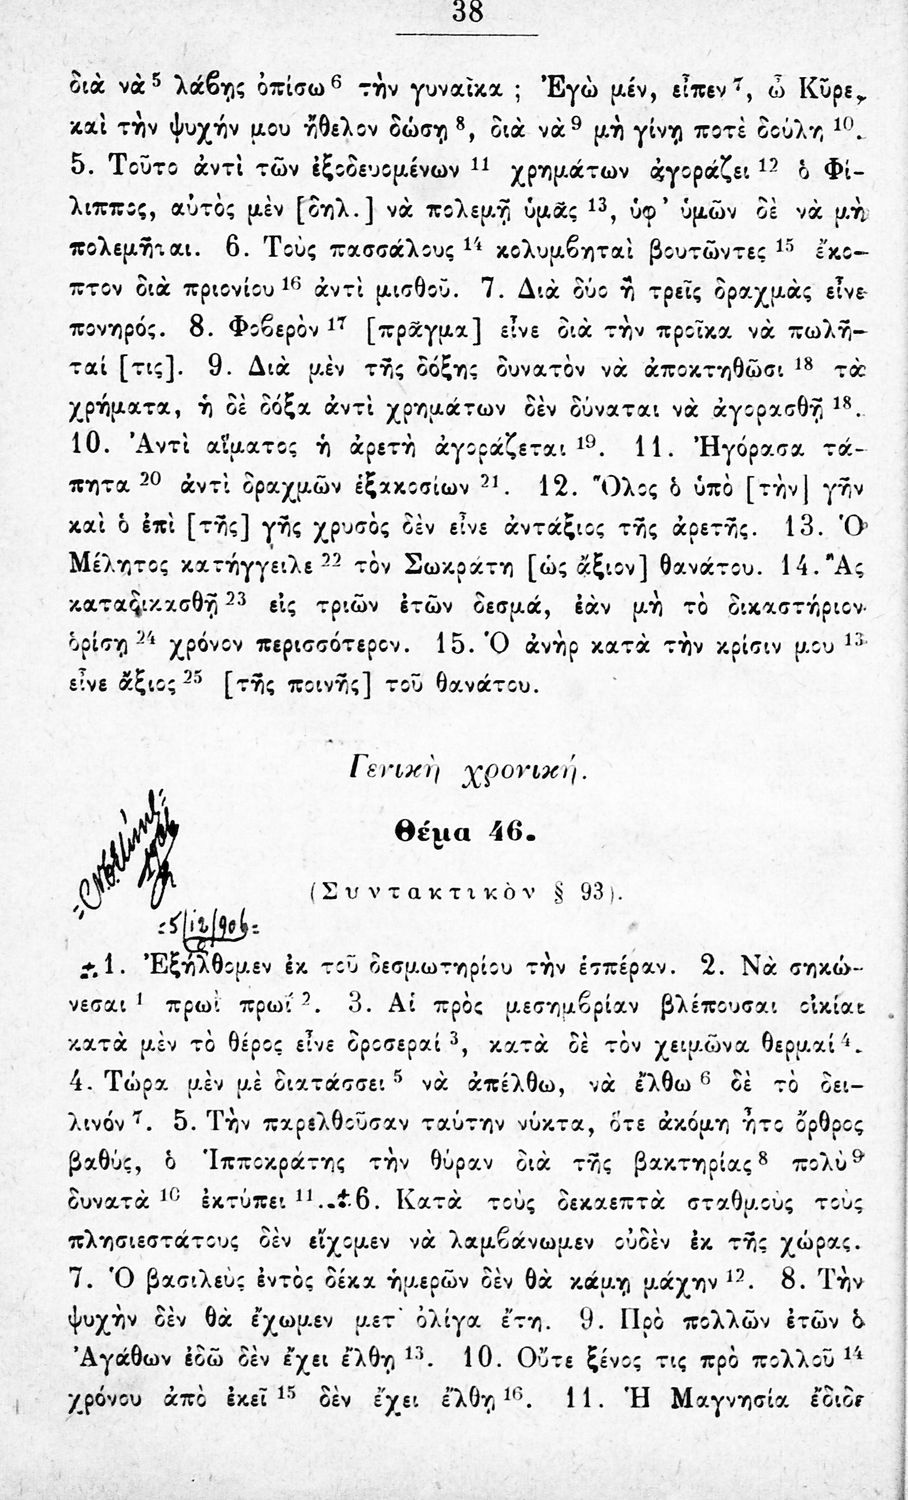 38
διὰ νὰ⁵ λάβῃς ὀπίσω⁶ τὴν γυναῖκα ; Ἐγὼ μέν, εἶπεν⁷, ὦ Κῦρε,
καὶ τὴν ψυχήν μου ἤθελον δώσῃ⁸, διὰ νὰ⁹ μὴ γίνῃ ποτὲ δούλη¹⁰.
5. Τοῦτο ἀντὶ τῶν ἐξοδευομένων¹¹ χρημάτων ἀγοράζει¹² ὁ Φί-
λιππος, αὐτὸς μὲν [δηλ.] νὰ πολεμῇ ὑμᾶς¹³, ὑφ’ ὑμῶν δὲ νὰ μὴ
πολεμῆται. 6. Τοὺς πασσάλους¹⁴ κολυμβηταὶ βουτῶντες¹⁵ ἔκο-
πτον διὰ πριονίου¹⁶ ἀντὶ μισθοῦ. 7. Διὰ δύο ἢ τρεῖς δραχμὰς εἶνε
πονηρός. 8. Φοβερὸν¹⁷ [πρᾶγμα] εἶνε διὰ τὴν προῖκα νὰ πωλῆ-
ταί [τις]. 9. Διὰ μὲν τῆς δόξης δυνατὸν νὰ ἀποκτηθῶσι¹⁸ τὰ
χρήματα, ἡ δὲ δόξα ἀντὶ χρημάτων δὲν δύναται νὰ ἀγορασθῇ¹⁸.
10. Ἀντὶ αἵματος ἡ ἀρετὴ ἀγοράζεται¹⁹. 11. Ἠγόρασα τά-
πητα²⁰ ἀντὶ δραχμῶν ἑξακοσίων²¹. 12. Ὅλος ὁ ὑπὸ [τὴν] γῆν
καὶ ὁ ἐπὶ [τῆς] γῆς χρυσὸς δὲν εἶνε ἀντάξιος τῆς ἀρετῆς. 13. Ὁ
Μέλητος κατήγγειλε²² τὸν Σωκράτη [ὡς ἄξιον] θανάτου. 14. Ἂς
καταδικασθῇ²³ εἰς τριῶν ἐτῶν δεσμά, ἐὰν μὴ τὸ δικαστήριον
ὁρίσῃ²⁴ χρόνον περισσότερον. 15. Ὁ ἀνὴρ κατὰ τὴν κρίσιν μου¹³
εἶνε ἄξιος²⁵ [τῆς ποινῆς] τοῦ θανάτου.
Γενικὴ χρονική.
Θέμα 46.
(Συντακτικὸν § 93).
5/12/906
1. Ἐξήλθομεν ἐκ τοῦ δεσμωτηρίου τὴν ἑσπέραν. 2. Νὰ σηκώ-
νεσαι¹ πρωῒ πρωΐ². 3. Αἱ πρὸς μεσημβρίαν βλέπουσαι οἰκίαι
κατὰ μὲν τὸ θέρος εἶνε δροσεραί³, κατὰ δὲ τὸν χειμῶνα θερμαί⁴.
4. Τώρα μὲν μὲ διατάσσει⁵ νὰ ἀπέλθω, νὰ ἔλθω⁶ δὲ τὸ δει-
λινόν⁷. 5. Τὴν παρελθοῦσαν ταύτην νύκτα, ὅτε ἀκόμη ἦτο ὄρθρος
βαθύς, ὁ Ἱπποκράτης τὴν θύραν διὰ τῆς βακτηρίας⁸ πολὺ⁹
δυνατὰ¹⁰ ἐκτύπει¹¹. 6. Κατὰ τοὺς δεκαεπτὰ σταθμοὺς τοὺς
πλησιεστάτους δὲν εἴχομεν νὰ λαμβάνωμεν οὐδὲν ἐκ τῆς χώρας.
7. Ὁ βασιλεὺς ἐντὸς δέκα ἡμερῶν δὲν θὰ κάμῃ μάχην¹². 8. Τὴν
ψυχὴν δὲν θὰ ἔχωμεν μετ’ ὀλίγα ἔτη. 9. Πρὸ πολλῶν ἐτῶν ὁ
Ἀγάθων ἐδῶ δὲν ἔχει ἔλθῃ¹³. 10. Οὔτε ξένος τις πρὸ πολλοῦ¹⁴
χρόνου ἀπὸ ἐκεῖ¹⁵ δὲν ἔχει ἔλθῃ¹⁶. 11. Ἡ Μαγνησία ἔδιδε